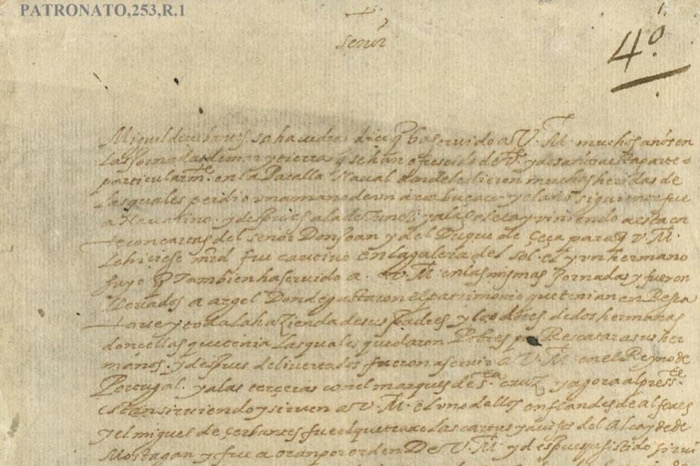 PATRONATO,253,R.1
1
4º
señor
Miguel de cerbantes sahavedra dice q ha servido a V. M. muchos años en
las jornadas de mar y tierra q se han ofrescido de Veinte y dos años a esta parte
particularmte. en la Batalla Naval donde le dieron muchas heridas de
las quales perdio una mano de un arcabuçaço y el año siguiente fue
a Navarino y despues a la de Tunez y a la goleta y viniendo a esta cor
te con cartas del señor Don Joan y del Duque de çeça para q V. M.
le hiciese md fue cautivo en la galera del sol el y un hermano
suyo q Tambien ha servido a V. M. en las mismas jornadas y fueron
llevados a argel Donde gastaron el patrimonio que tenian en Resca
tarse y toda la hazienda de sus padres y los dotes de dos hermanas
doncellas que tenia las quales quedaron Pobres por Rescatar a sus her
manos. y despues de libertados fueron a servir a V. M. en el Reyno de
Portugal. y a las terceras con el marques de sta. cruz y agora al preste.
estan sirviendo y sirven a V. M. el uno dellos en flandes de alferez
y el miguel de çerbantes fue el que traxo las cartas y avisos del Alcayde de
Mostagan y fue a oran por orden De V. M. y despues